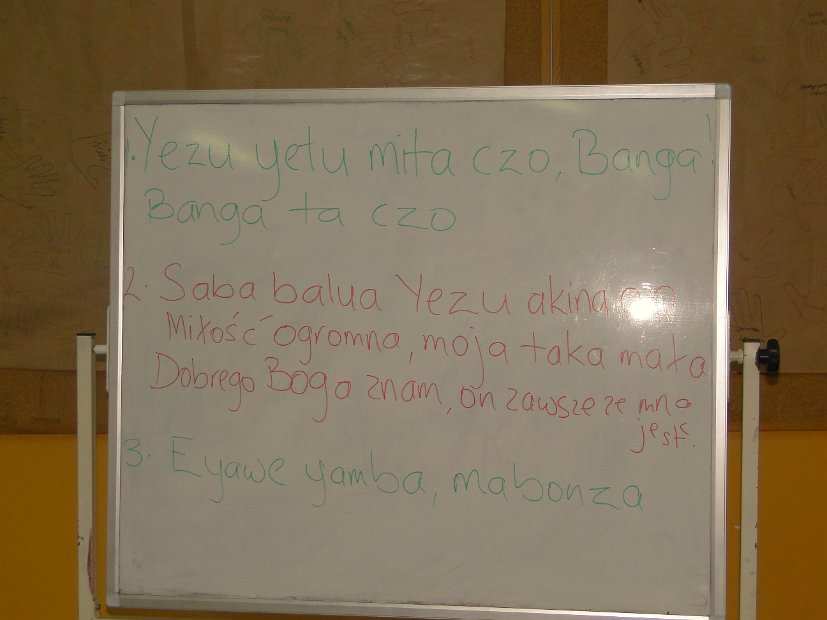 1. Yezu yetu mita czo, Banga!
Banga ta czo
2. Saba balua Yezu akina
Miłość ogromna, moja taka mała
Dobrego Boga znam, on zawsze ze mną
jest.
3. Eyawe yamba, mabonza